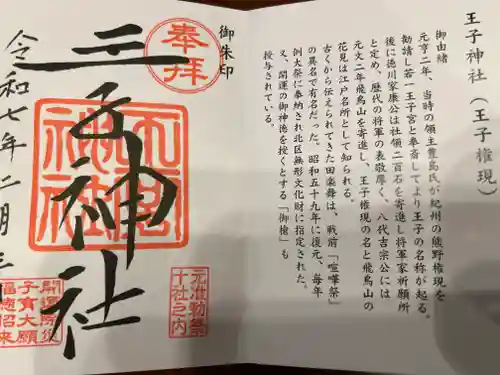 王子神社(王子権現)
御由緒
元亨二年、当時の領主豊島氏が紀州の熊野権現を
勧請し若一王子宮と奉斎してより王子の名称が起る。
後に徳川家康公は社領二百石を寄進し将軍家祈願所
と定め、歴代の将軍の表敬厚く、八代吉宗公には
元文二年飛鳥山を寄進し、王子権現の名と飛鳥山の
花見は江戸名所として知られる。
古くから伝えられてきた田楽舞は、戦前「喧嘩祭」
の異名で有名だった。昭和五十九年に復元、毎年
例大祭に奉納され北区無形文化財に指定された。
又、開運の御神徳を授くとする「御槍」も
授与されている。
御朱印
奉拝
元准勅祭
十社之内
王子神社
王子
神社
開運除災
子育大願
福徳招来
令和七年二月三